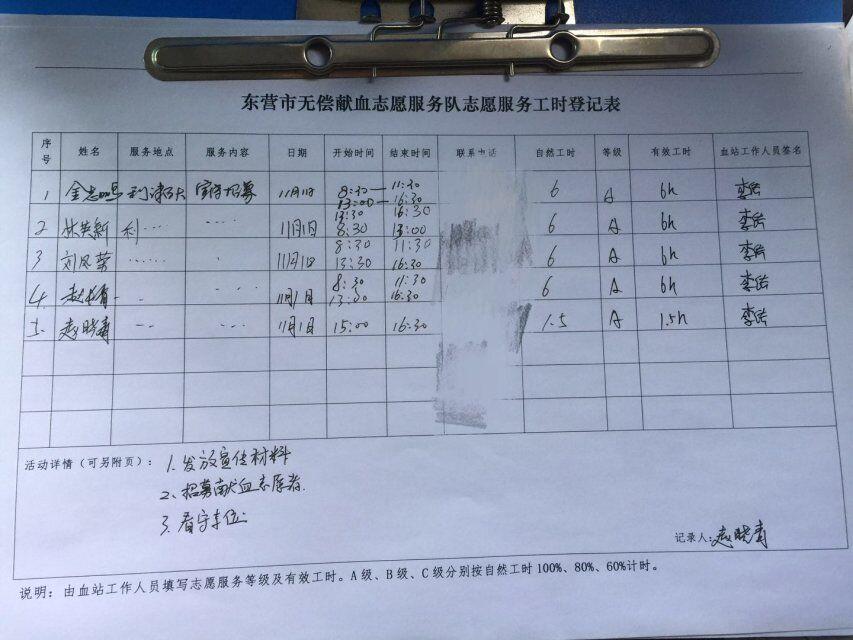 东营市无偿献血志愿服务队志愿服务工时登记表
序号 姓名 服务地点 服务内容 日期 开始时间 结束时间 联系电话 自然工时 等级 有效工时 血站工作人员签名
1 宣传招募 11月1日 8:30— 11:30 6 A 6h
13:00— 16:30
2 11月1日 13:30 16:30 6 A 6h
8:30 13:00
3 刘凤荣 …… 11月1日 8:30 11:30 6 A 6h
13:30 16:30
4. 11月1日 8:30 11:30 6 A 6h
13:00 16:30
5. 赵晓青 11月1日 15:00 16:30 1.5 A 1.5h
活动详情（可另附页）： 1.发放宣传材料
2、招募献血志愿者.
3.看守车位
记录人: 赵晓青
说明：由血站工作人员填写志愿服务等级及有效工时。A级、B级、C级分别按自然工时100%、80%、60%计时。